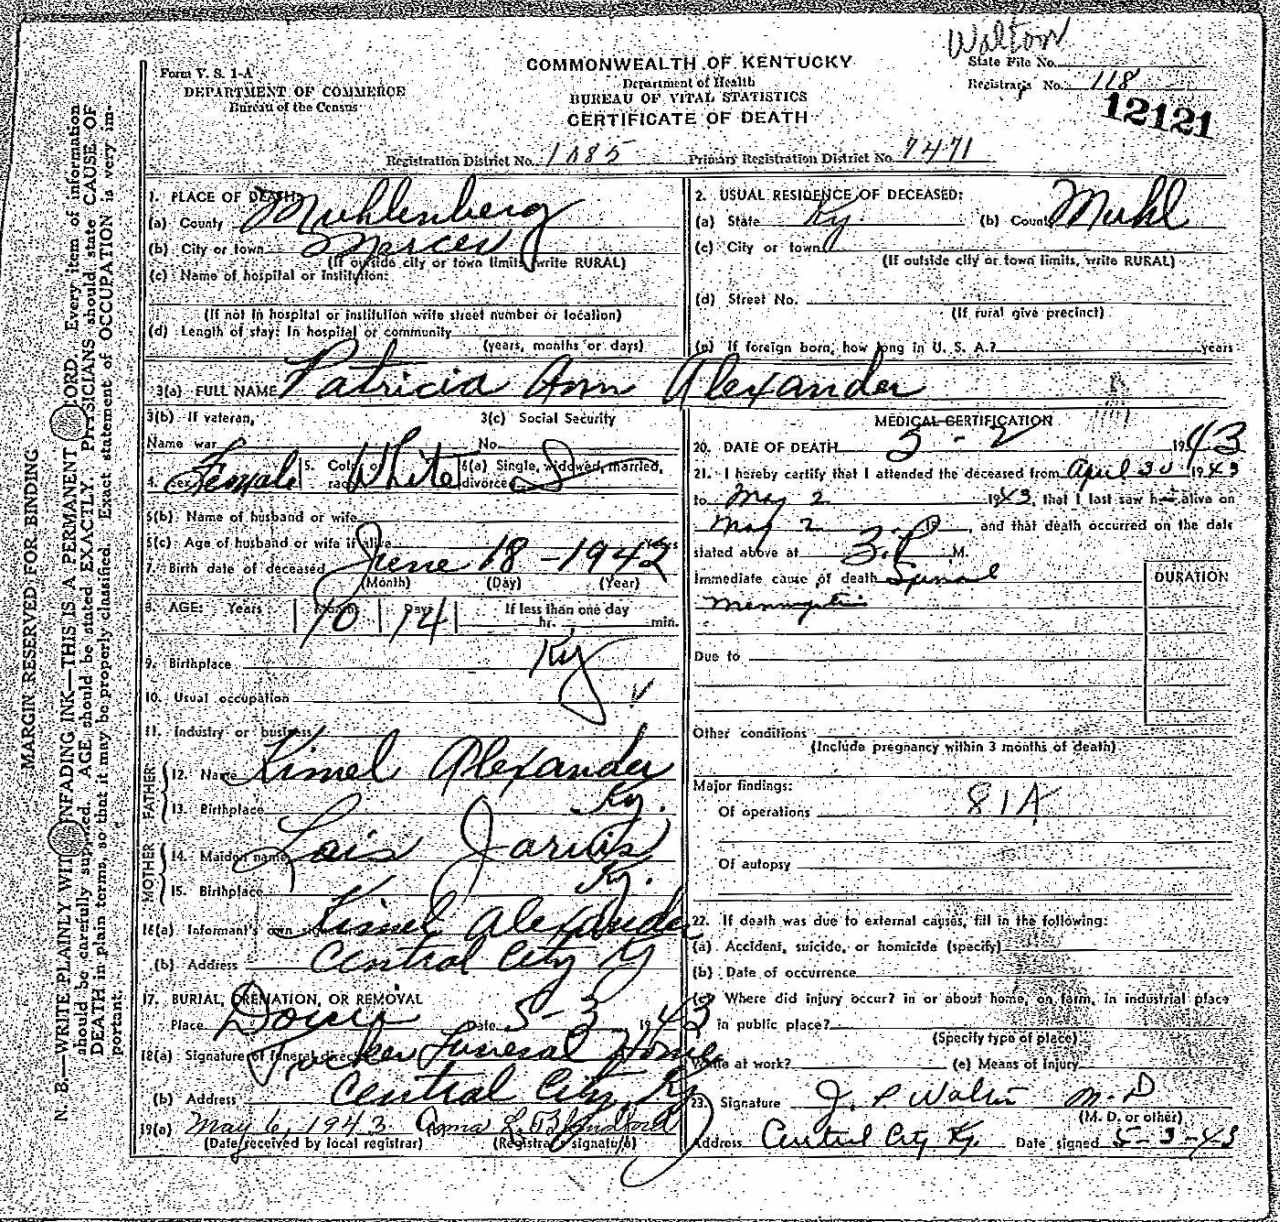 Walton
COMMONWEALTH OF KENTUCKY
State File No.
Form V. S. 1-A
Department of Health
Registrar's No. 118
DEPARTMENT OF COMMERCE
BUREAU OF VITAL STATISTICS
12121
Bureau of the Census
CERTIFICATE OF DEATH
Registration District No. 1085 Primary Registration District No. 7471
1. PLACE OF DEATH:
(a) County Muhlenberg
(b) City or town
(If outside city or town limits, write RURAL)
(c) Name of hospital or institution:
(If not in hospital or institution write street number or location)
(d) Length of stay: In hospital or community
(years, months or days)
2. USUAL RESIDENCE OF DECEASED:
(a) State Ky. (b) County Muhl
(c) City or town
(If outside city or town limits, write RURAL)
(d) Street No.
(If rural give precinct)
(e) If foreign born, how long in U. S. A.? years
3(a) FULL NAME Patricia Ann Alexander
3(b) If veteran, 3(c) Social Security
Name war No.
4. Sex Female 5. Color or race White 6(a) Single, widowed, married, divorced S
6(b) Name of husband or wife
6(c) Age of husband or wife if alive years
7. Birth date of deceased June 18 - 1942
(Month) (Day) (Year)
8. AGE: Years Months Days If less than one day
10 14 hr. min.
9. Birthplace Ky
10. Usual occupation
11. Industry or business
FATHER
12. Name Kimel Alexander
13. Birthplace Ky.
MOTHER
14. Maiden name Lois Jarvis
15. Birthplace Ky.
16(a) Informant's own signature Kimel Alexander
(b) Address Central City Ky
17. BURIAL, CREMATION, OR REMOVAL
Place Date 5-3 1943
18(a) Signature of funeral director Tucker Funeral Home
(b) Address Central City, Ky
19(a) May 6, 1943 Anna L. Blandford
(Date received by local registrar) (Registrar's signature)
MEDICAL CERTIFICATION
20. DATE OF DEATH 5 - 2 1943
21. I hereby certify that I attended the deceased from April 30 1943
to May 2 1943, that I last saw h alive on
May 2 19 , and that death occurred on the date
stated above at 3. P M.
Immediate cause of death Spinal DURATION
Meningitis
Due to
Other conditions
(Include pregnancy within 3 months of death)
Major findings:
Of operations 81A
Of autopsy
22. If death was due to external causes, fill in the following:
(a) Accident, suicide, or homicide (specify)
(b) Date of occurrence
(c) Where did injury occur? in or about home, on farm, in industrial place
in public place?
(Specify type of place)
While at work? (e) Means of injury
23. Signature J. P. Walton M. D
(M. D. or other)
Address Central City Ky Date signed 5-3-43
MARGIN RESERVED FOR BINDING
N. B.—WRITE PLAINLY WITH UNFADING INK—THIS IS A PERMANENT RECORD. Every item of information
should be carefully supplied. AGE should be stated EXACTLY. PHYSICIANS should state CAUSE OF
DEATH in plain terms, so that it may be properly classified. Exact statement of OCCUPATION is very im-
portant.